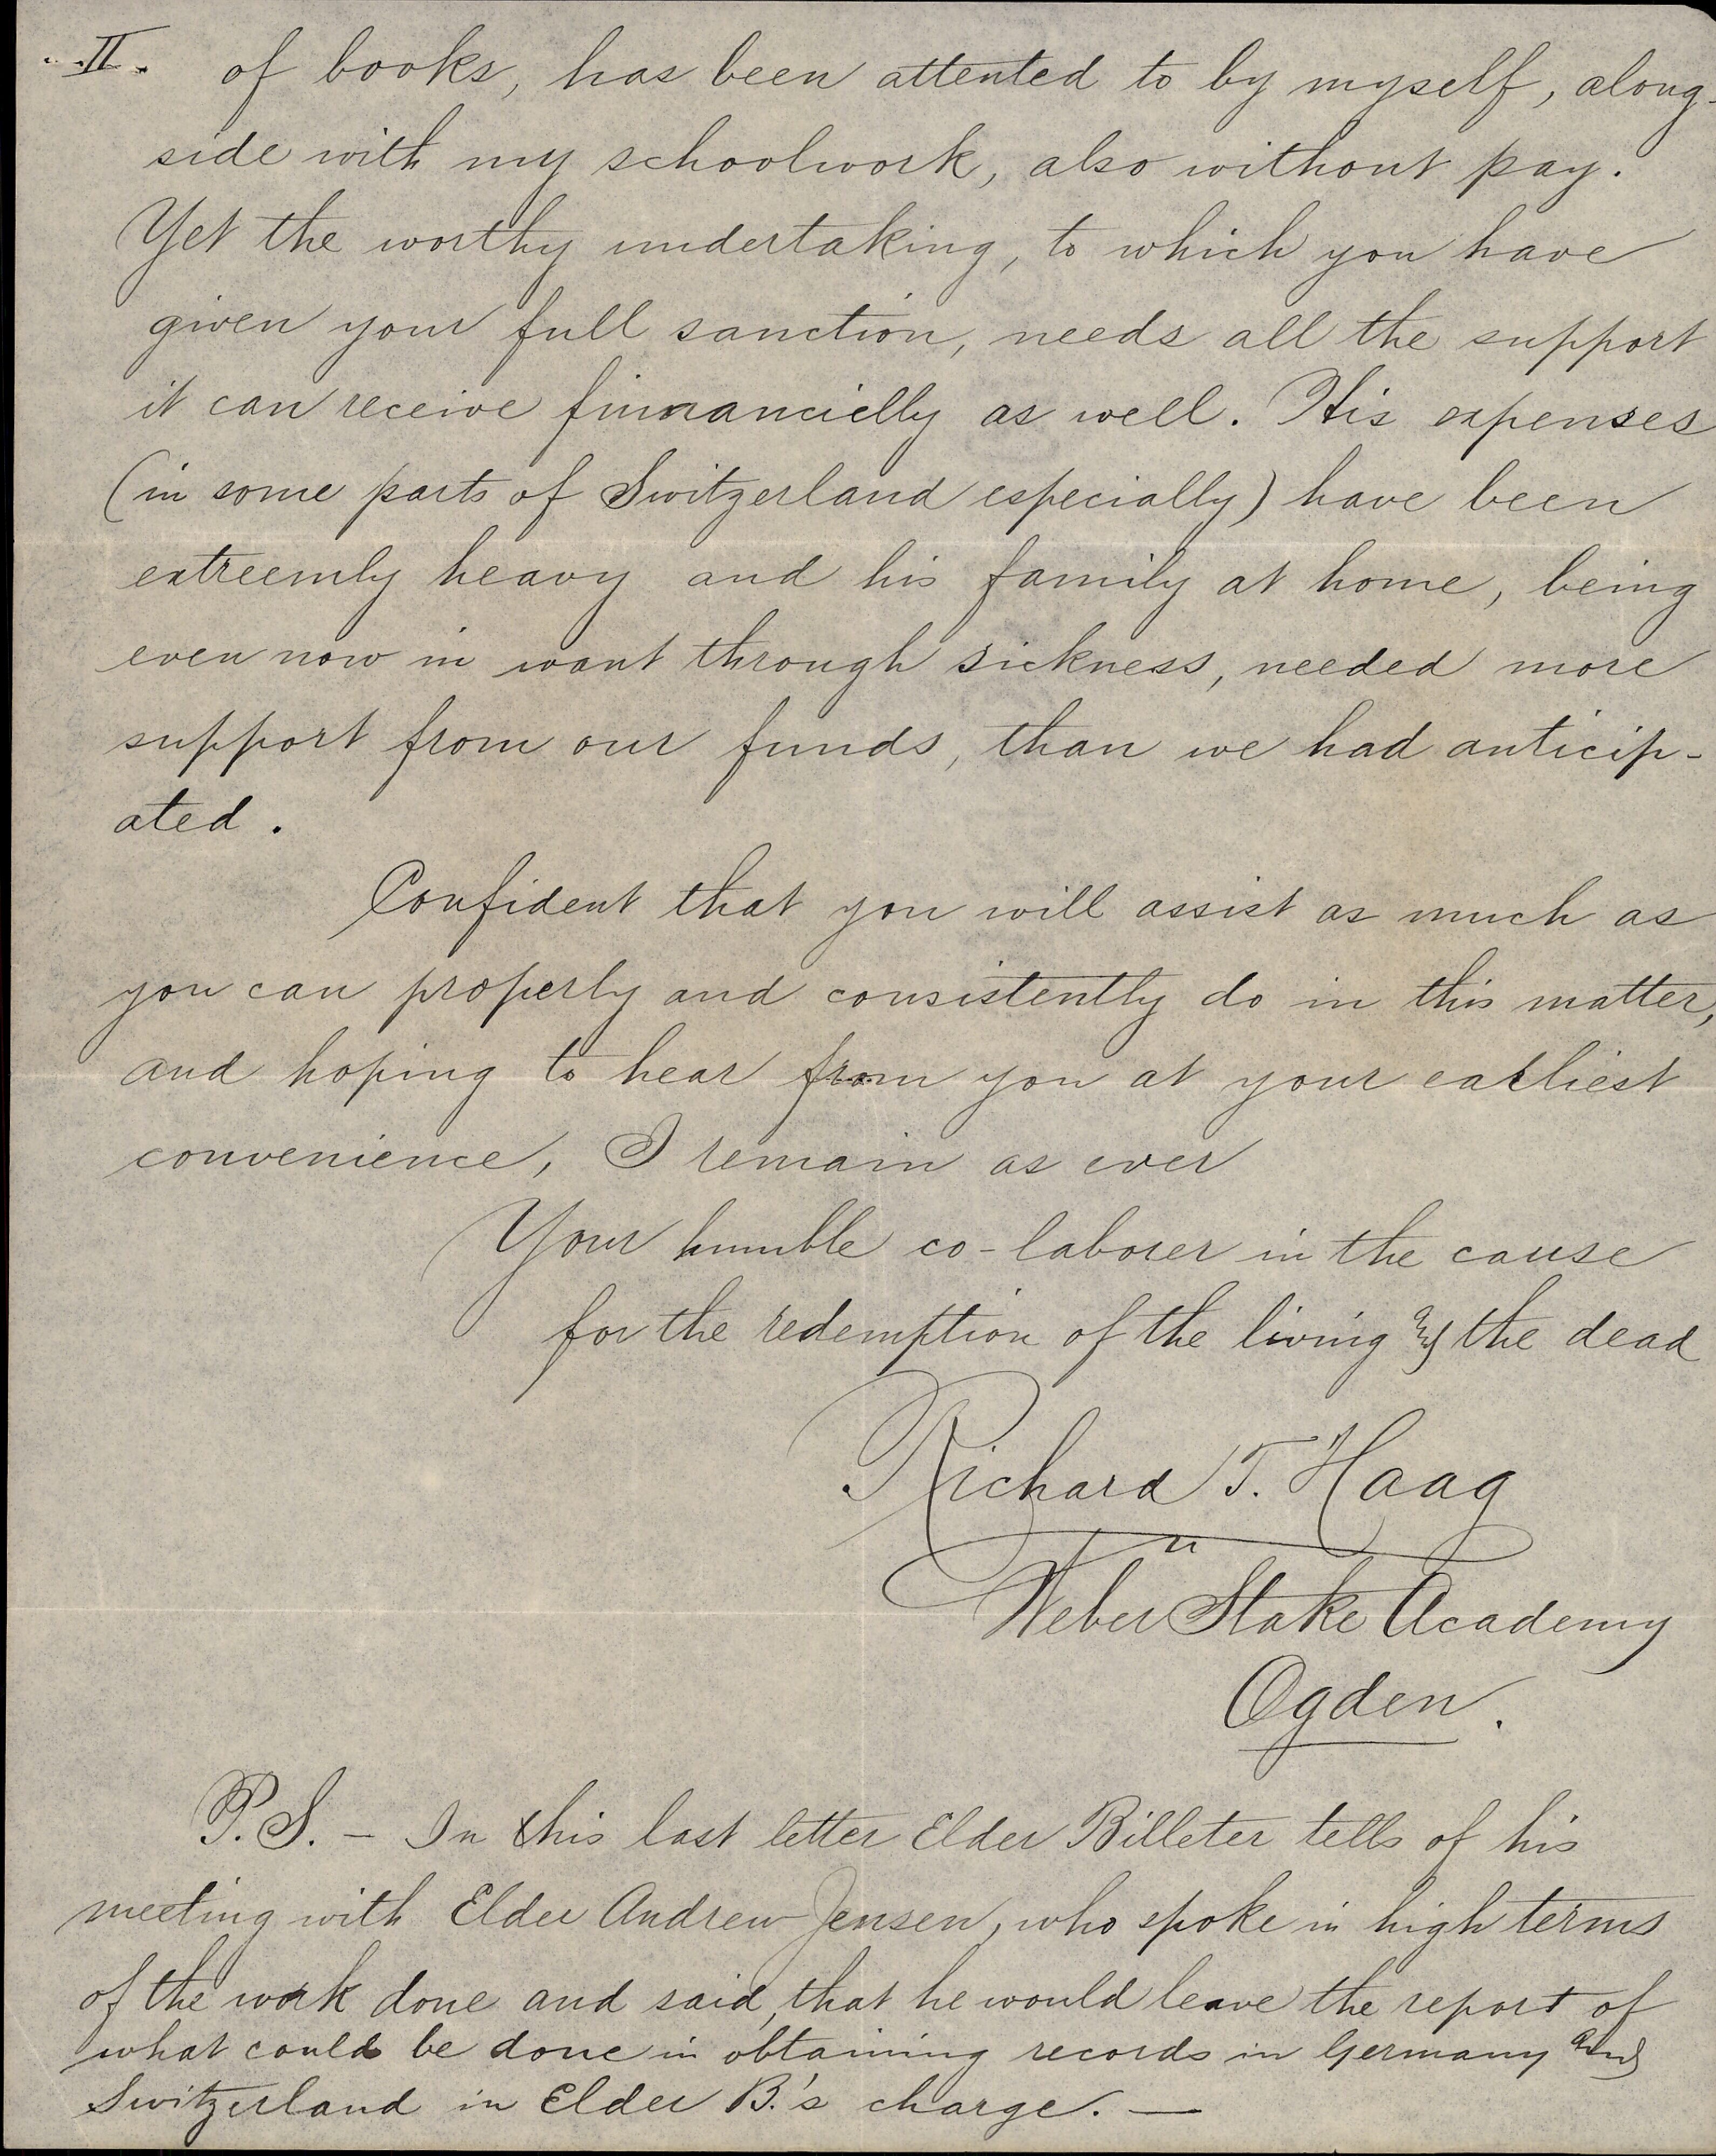 II. of books, has been attented to by myself, along-
side with my schoolwork, also without pay.
Yet the worthy undertaking, to which you have
given your full sanction, needs all the support
it can receive finnancielly as well. His expenses
(in some parts of Switzerland especially) have been
extreemly heavy and his family at home, being
even now in want through sickness, needed more
support from our funds, than we had anticip-
ated.
Confident that you will assist as much as
you can properly and consistently do in this matter,
and hoping to hear from you at your earliest
convenience, I remain as ever
Your humble co-laborer in the cause
for the redemption of the living and the dead
Richard T. Haag
Weber Stake Academy
Ogden.
P.S. - In this last letter Elder Billeter tells of his
meeting with Elder Andrew Jensen, who spoke in high terms
of the work done and said, that he would leave the report of
what could be done in obtaining records in Germany and
Switzerland in Elder B.'s charge. —